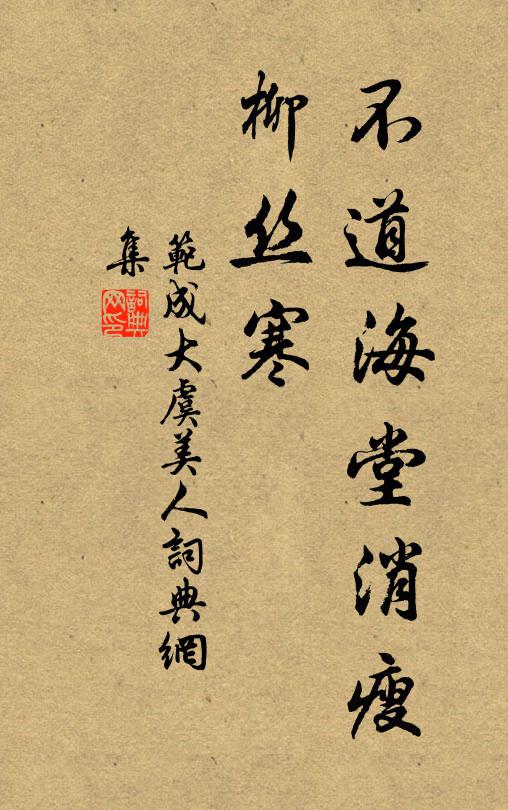 不道海堂消瘦
柳丝寒
範成大虞美人詞典網
集
詞典网印